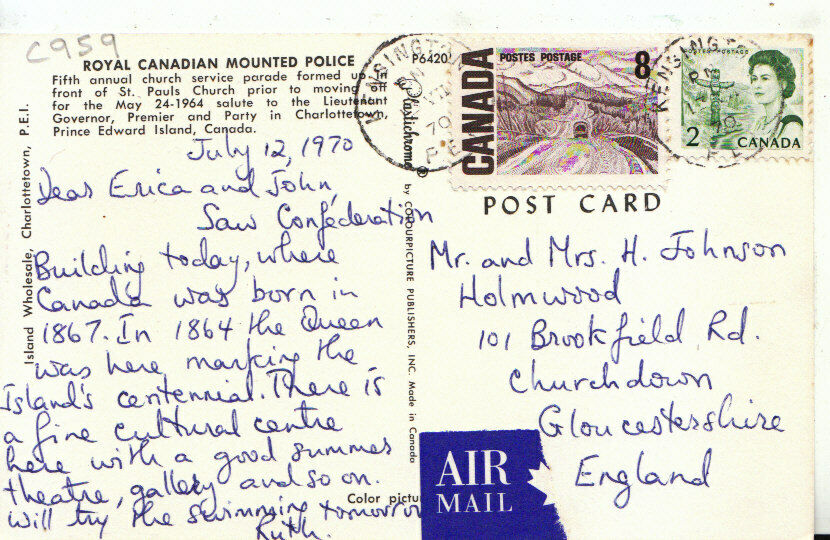 C959
ROYAL CANADIAN MOUNTED POLICE
Fifth annual church service parade formed up in
front of St. Pauls Church prior to moving off
for the May 24-1964 salute to the Lieutenant
Governor, Premier and Party in Charlottetown,
Prince Edward Island, Canada.
P6420
Island Wholesale, Charlottetown, P.E.I.
Plastichrome® by COLOURPICTURE PUBLISHERS, INC. Made in Canada
July 12, 1970
Dear Erica and John,
Saw Confederation
Building today, where
Canada was born in
1867. In 1864 the Queen
was here marking the
Island's centennial. There is
a fine cultural centre
here with a good summer
theatre, gallery and so on.
Will try the swimming tomorrow
Ruth.
KENSINGTON
PM
70
P.E.
CANADA
POSTES POSTAGE
8
KENSINGTON
PM
70
POSTES POSTAGE
2
CANADA
POST CARD
Mr. and Mrs. H. Johnson
Holmwood
101 Brookfield Rd.
Churchdown
Gloucestershire
England
AIR
MAIL
Color pictu